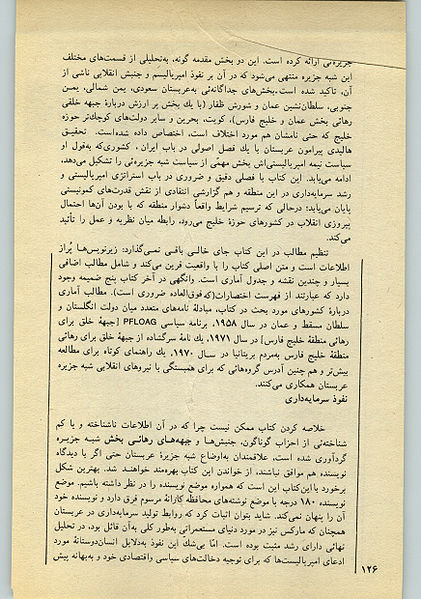 جزیره‌ئی ارائه کرده است. این دو بخش مقدمه گونه، به‌تحلیلی از قسمت‌های مختلف
این شبه جزیره منتهی می‌شود که در آن بر نفوذ امپریالیسم و جنبش انقلابی ناشی از
آن، تاکید شده است. بخش‌های جداگانه‌ئی به‌عربستان سعودی، یمن شمالی، یمن
جنوبی، سلطان‌نشین عمان و شورش ظفار (با یك بخش پر ارزش دربارهٔ جبههٔ خلقی
رهائی بخش عمان و خلیج فارس)، کویت، بحرین و سایر دولت‌های کوچك‌تر حوزه
خلیج که حتی نامشان هم مورد اختلاف است، اختصاص داده شده‌است. تحقیق
هالیدی پیرامون عربستان با یك فصل اصولی در باب ایران ، کشوری‌که به‌قول او
سیاست نیمه امپریالیستی‌اش بخش مهمّی از سیاست شبه جزیره‌ئی را تشکیل می‌دهد،
ادامه می‌یابد. این کتاب با فصلی دقیق و ضروری در باب استراتژی امپریالیستی و
رشد سرمایه‌داری در این منطقه و هم گزارشی انتقادی از نقش قدرت‌های کمونیستی
پایان می‌یابد؛ درحالی که ترسیم شرایط واقعاً دشوار منطقه که با بودن آن‌ها احتمال
پیروزی انقلاب در کشورهای حوزهٔ خلیج می‌رود، رابطه میان نظریه و عمل را تأئید
می‌کند.
تنظیم مطالب در این کتاب جای خالی باقی نمی‌گذارد: زیرنویس‌ها پُراز
اطلاعات است و متن اصلی کتاب را با واقعیت قرین می‌کند و شامل مطالب اضافی
بسیار و چندین نقشه و جدول آماری است. وانگهی در آخر کتاب پنج ضمیمه وجود
دارد که عبارتند از فهرست اختصارات(که فوق‌العاده ضروری است). مطالب آماری
دربارهٔ کشورهای مورد بحث در کتاب، مبادلهٔ نامه‌های متعدد میان دولت انگلستان و
سلطان مسقط و عمان در سال ۱۹۵۸، برنامه سیاسی PFLOAG [جبههٔ خلق برای
رهائی منطقهٔ خلیج فارس] در سال ۱۹۷۱، یك نامهٔ سرگشاده از جبههٔ خلق برای رهائی
منطقهٔ خلیج فارس به‌مردم بریتانیا در سال ۱۹۷۰، یك راهنمای کوتاه برای مطالعه
بیش‌تر و هم چنین آدرس گروه‌هائی که برای همبستگی با نیروهای انقلابی شبه جزیره
عربستان همکاری می‌کنند.
نفوذ سرمایه‌داری
خلاصه کردن کتاب ممکن نیست چرا که در آن اطلاعات ناشناخته و یا کم
شناخته‌ئی از احزاب گوناگون، جنبش‌ها و جبهه‌های رهائی بخش شبه جزیره
گردآوری شده است، علاقمندان به‌اوضاع شبه جزیرهٔ عربستان حتی اگر با دیدگاه
نویسنده هم موافق نباشند، از خواندن این کتاب بهره‌مند خواهند شد. بهترین شکل
برخورد با این‌کتاب این است که همواره موضع نویسنده را در نظر داشته باشیم. موضع
نویسنده ۱۸۰ درجه با موضع نوشته‌های محافظه کارانهٔ مرسوم فرق دارد و نویسنده خود
آن را پنهان نمی‌کند. شاید بتوان اثبات کرد که روابط تولید سرمایه‌داری در عربستان
همچنان که مارکس نیز در مورد دنیای مستعمراتی به‌طور کلی به‌آن قائل بود، در تحلیل
نهائی دارای رشد مثبت بوده است. امّا بی‌شك این نفوذ به‌دلایل انسان‌دوستانهٔ مورد
ادعای امپریالیست‌ها که برای توجیه دخالت‌های سیاسی واقتصادی خود و به‌بهانه پیش
۱۲۶